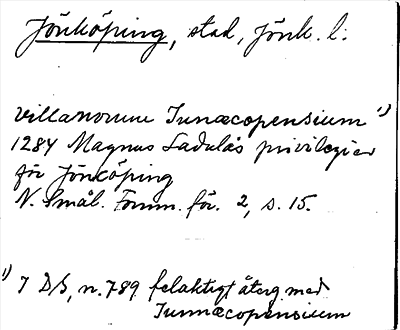 Jönköping, stad, Jönk. l:
villanorum Junacopensium 1)
1284 Magnus Ladulås privilegier
för Jönköping
N. Smål. Fornm. för. 2, s. 15.
1) I DS, n. 789 felaktigt återg. med
Junnacopensium